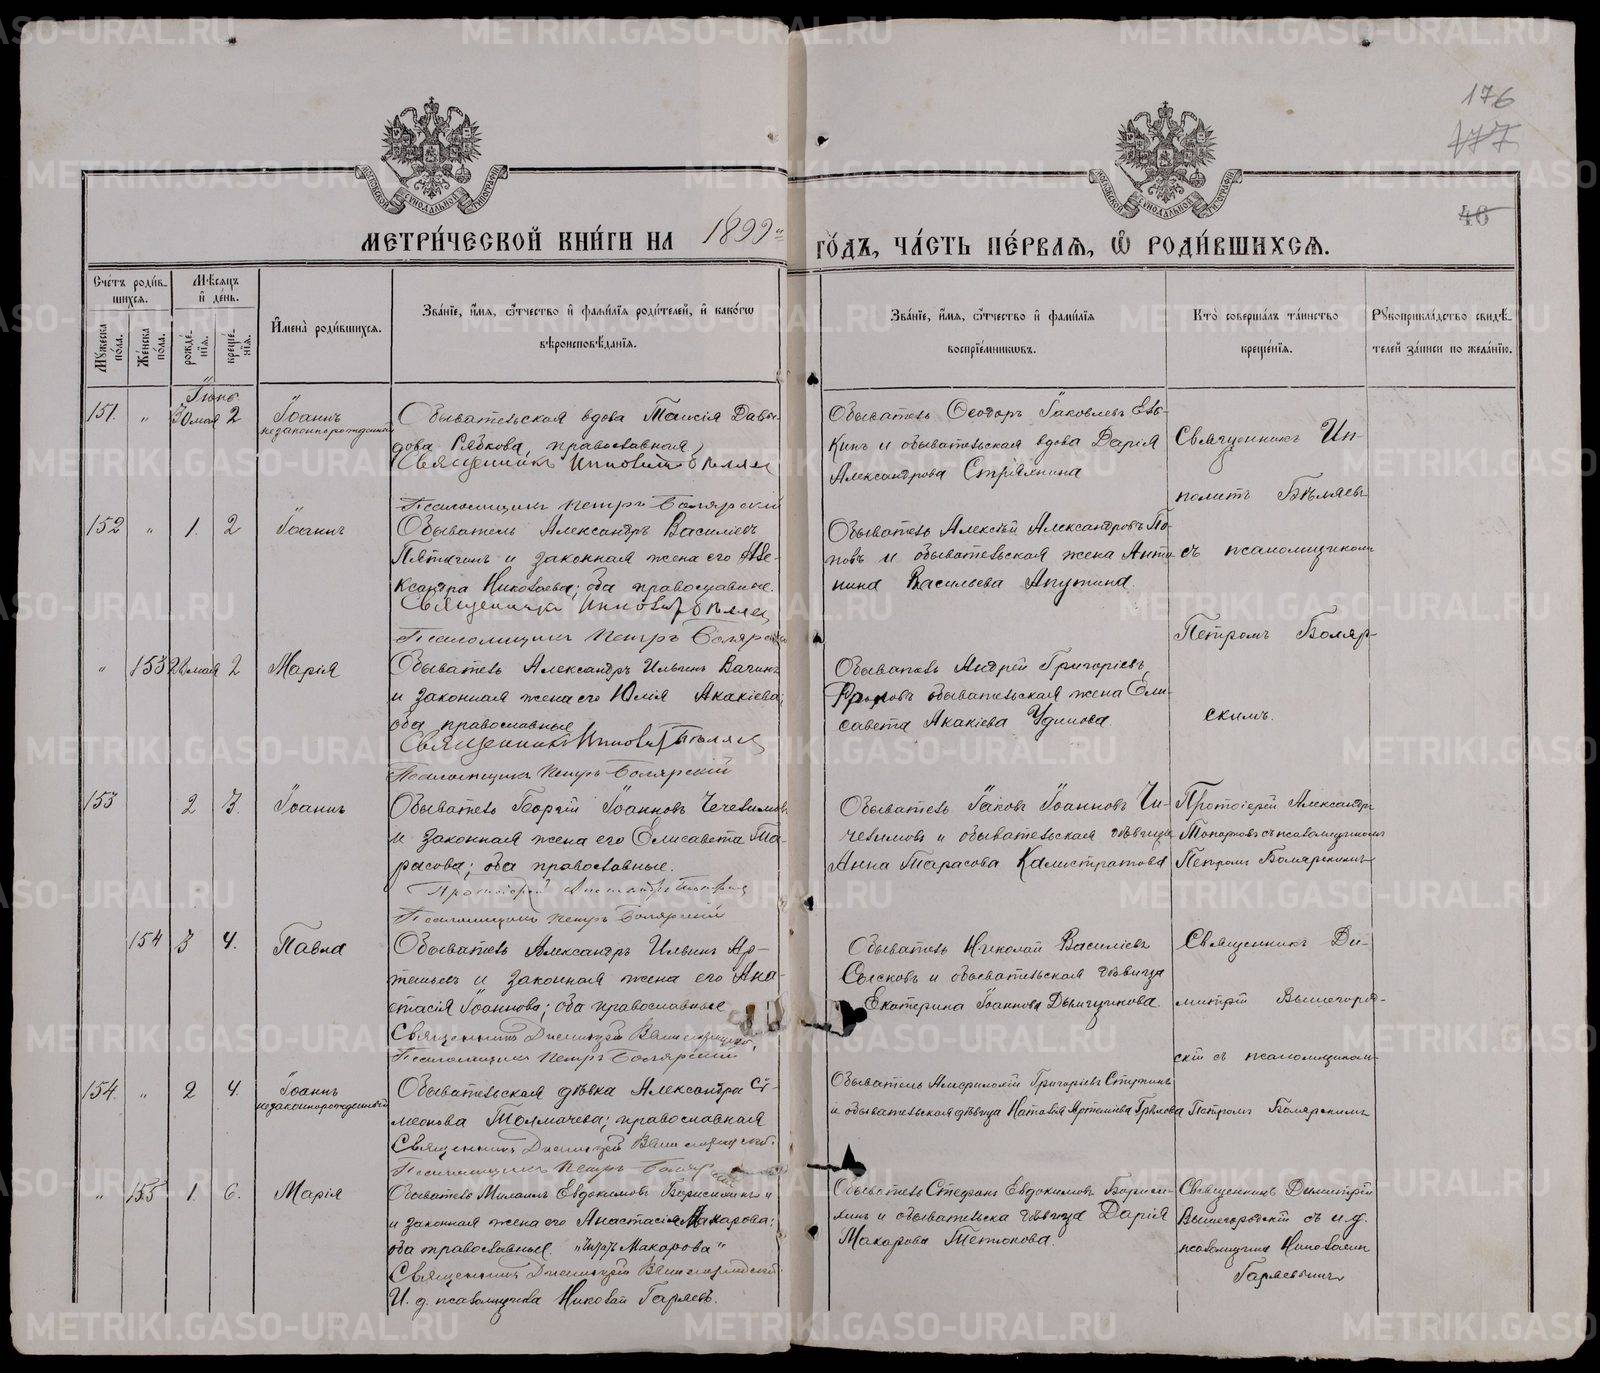 176
177
46
МЕТРИ́ЧЕСКОЙ КНИ́ГИ НА 1899 ГО́ДЪ, ЧА́СТЬ ПЕ́РВАЯ, Ѽ РОДИ́ВШИХСЯ.
Сче́тъ роди́вшихся.
Мꙋ́жеска по́ла.
Же́нска по́ла.
Мѣ́сяцъ и҆ де́нь.
рожде́нїѧ.
креще́нїѧ.
И҆мена̀ роди́вшихсѧ.
Зва́нїе, и҆́мѧ, ѻ҆́тчество и҆ фами́лїѧ роди́телей, и҆ како́гѡ
вѣроисповѣ́данїѧ.
Зва́нїе, и҆́мѧ, ѻ҆́тчество и҆ фами́лїѧ
воспрїе́мникѡвъ.
Кто̀ соверша́лъ та́инство
креще́нїѧ.
Рꙋкоприкла́дство свидѣ́телей за́писи по жела́нїю.
Іюнь
151. " 30 мая 2 Іоаннъ
незаконнорожденный
Обывательская вдова Таисія Давыдова Рябкова, православная
Священникъ Ипполитъ Бѣляевъ
Псаломщикъ Петръ Боярскій
Обыватель Ѳеодоръ Іаковлевъ
и обывательская вдова Дарія
Александрова
Священникъ Ипполитъ Бѣляевъ
съ псаломщикомъ
Петромъ Боярскимъ.
152 " 1. 2 Іоаннъ
Обыватель Александръ Василіевъ
и законная жена его Александра Николаева; оба православные.
Священникъ Ипполитъ Бѣляевъ
Псаломщикъ Петръ Боярскій
Обыватель Алексѣй Александровъ Поповъ и обывательская жена Антонина Васильева
" 153 28 мая 2 Марія
Обыватель Александръ Ильинъ Вагинъ
и законная жена его Юлія Акакіева;
оба православные
Священникъ Ипполитъ Бѣляевъ
Псаломщикъ Петръ Боярскій
Обыватель Андрей Григоріевъ
обывательская жена Елисавета Акакіева Удинова.
153 2 3. Іоаннъ
Обыватель Георгій Іоанновъ
и законная жена его Елисавета Тарасова; оба православные.
Протоіерей Александръ Топорковъ
Псаломщикъ Петръ Боярскій
Обыватель Іаковъ Іоанновъ
и обывательская дѣвица
Анна Тарасова Калистратова
Протоіерей Александръ
Топорковъ съ псаломщикомъ
Петромъ Боярскимъ
154 3 4. Павла
Обыватель Александръ Ильинъ Артемьевъ и законная жена его Анастасія Іоаннова; оба православные
Священникъ Димитрій Вышегородскій.
Псаломщикъ Петръ Боярскій
Обыватель Николай Василіевъ
и обывательская дѣвица
Екатерина Іоаннова
Священникъ Димитрій Вышегородскій съ псаломщикомъ
Петромъ Боярскимъ
154. " 2 4. Іоаннъ
незаконнорожденный
Обывательская дѣвка Александра Симеонова Толмачева; православная
Священникъ Димитрій Вышегородскій.
Псаломщикъ Петръ Боярскій
Обыватель Григоріевъ
и обывательская дѣвица Наталія Артеміева
" 155 1. 6. Марія
Обыватель Михаилъ Евдокимовъ
и законная жена его Анастасія Макарова;
оба православные. Макарова"
Священникъ Димитрій Вышегородскій.
И. д. псаломщика Николай Гаряевъ.
Обыватель Стефанъ Евдокимовъ
и обывательска дѣвица Дарія
Макарова
Священникъ Димитрій
Вышегородскій съ и. д.
псаломщика Николаемъ
Гаряевымъ
METRIKI.GASO-URAL.RU